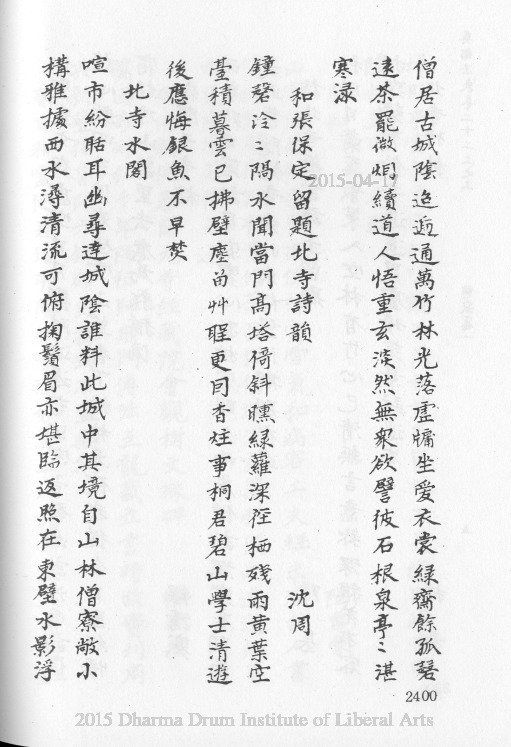 僧居古城陰迤逦通萬竹林光落虛牖坐愛衣裳綠齋餘孤磬
遠茶罷微烟續道人悟重玄淡然無衆欲譬彼石根泉亭〻湛
寒淥
和張保定留題北寺詩韻 沈周
鐘磬泠〻隔水聞當門髙塔倚斜曛綠蘿深徑栖殘雨黄葉空
臺積暮雲已拂壁塵留艸聖更同香炷事桐君碧山學士清遊
後應悔銀魚不早焚
北寺水閣
喧市紛聒耳幽尋造城陰誰料此城中其境自山林僧寮敞小
構雅據西水潯清流可俯掬鬚眉亦堪臨返照在東壁水影浮
2400
2015-04-17
2015 Dharma Drum Institute of Liberal Arts